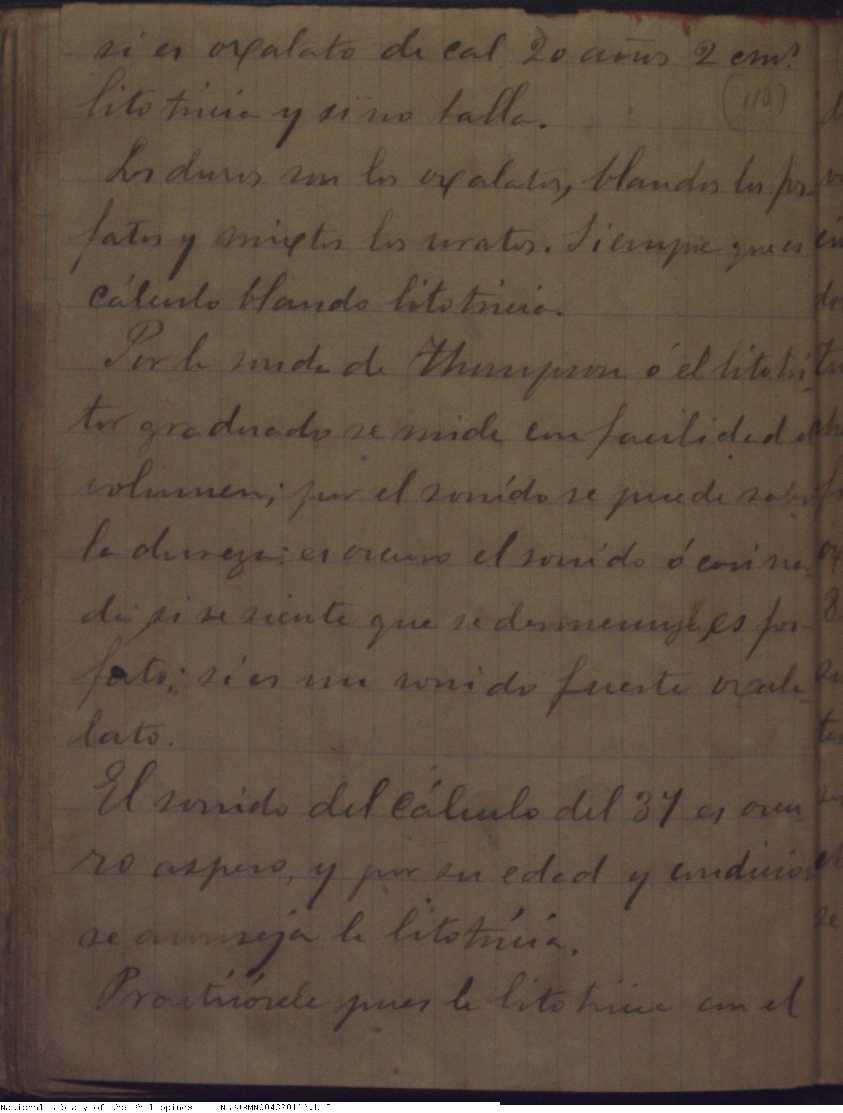 si es oxalato de cal 20 años 2 cm?
(110)
litotricia y sino talla.
Los duros son los oxalatos, blandos los fos-
fatos y mixtos los uratos. Siempre que es
cálculo blando litotricia.
Por la sonda de Thompson ó el litotri-
tor graduado se mide con facilidad el
volumen; por el sonído se puede saber
la dureza: es oscuro el sonido ó casi na-
da si se siente que se desmenuza, es fos-
fato; si es un sonido fuerte oxala-
lato.
El sonido del cálculo del 37 es oscu
ro aspero, y por su edad y condicio
se aconseja la litotrícia.
Practicósele pues la litotricia con el
National Library of the Philippines